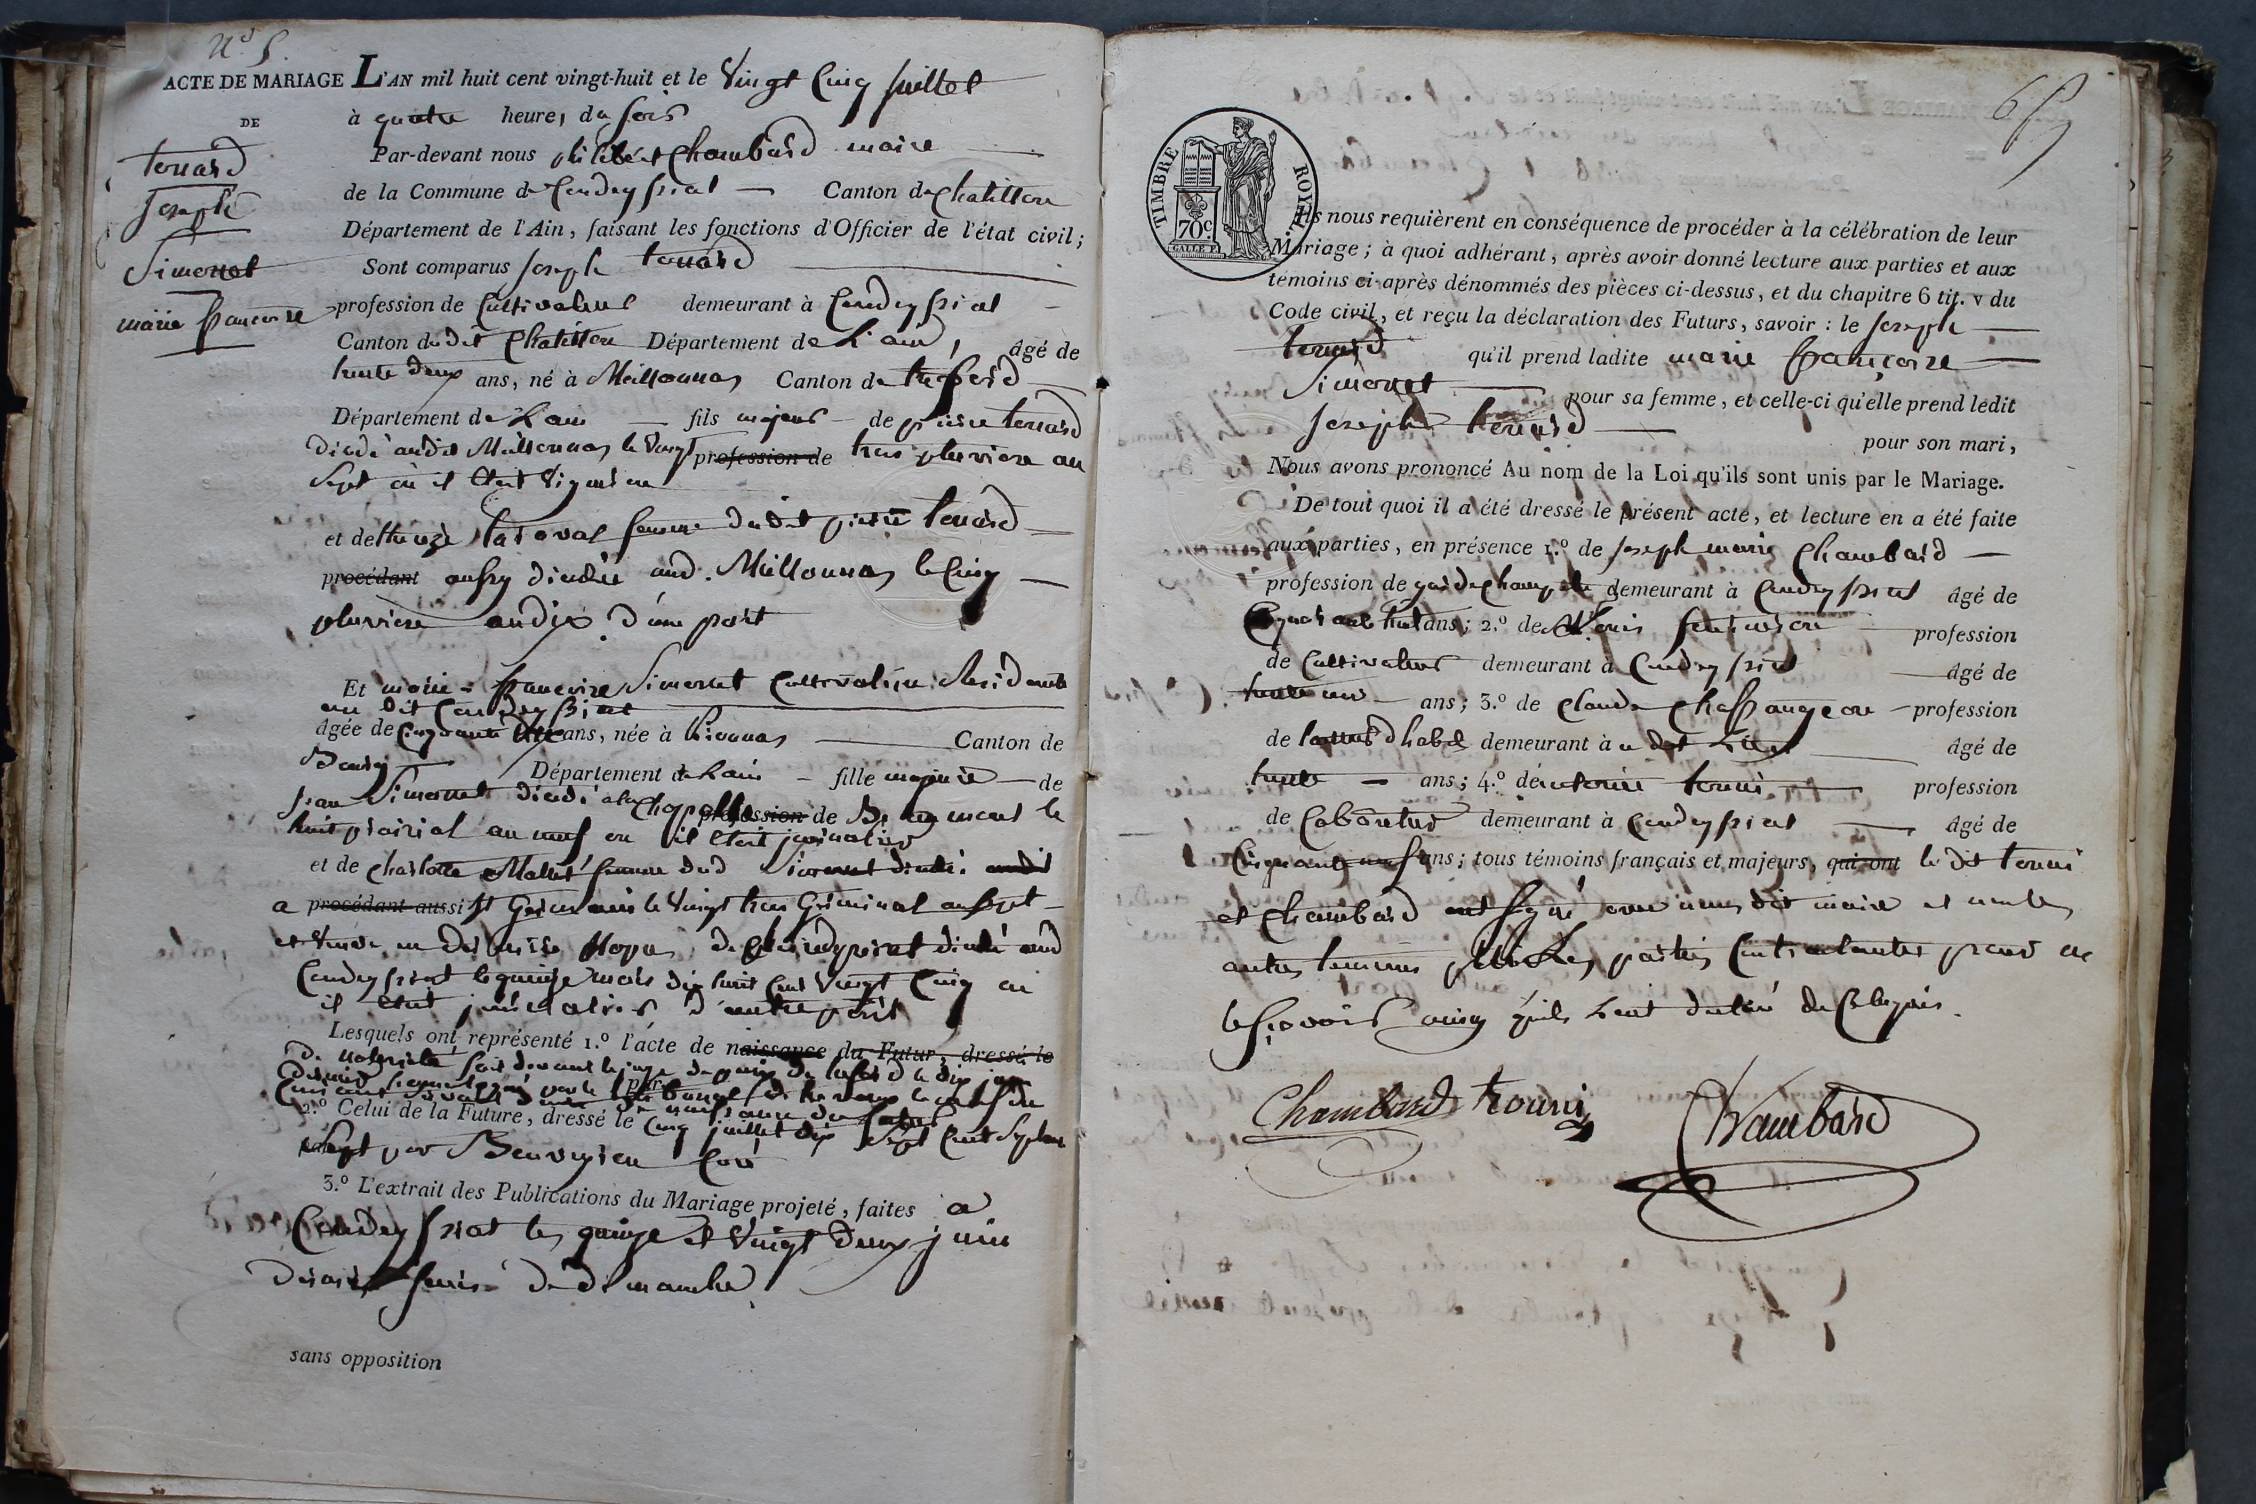 N° 5.
ACTE DE MARIAGE L'AN mil huit cent vingt-huit et le vingt Cinq juillet
DE
à quatre heures du soir
terrard
Joseph
Simonet
marie françoise
Par-devant nous philibert Chambard maire
de la Commune de Condeyssiat Canton de Chatillon
Département de l'Ain, faisant les fonctions d'Officier de l'état civil;
Sont comparus Joseph terrard
profession de Cultivateur demeurant à Condeyssiat
Canton dudit Chatillon Département de L'ain, âgé de
trente deux ans, né à Meillonnas Canton de trefford
Département de L'ain fils majeur de pierre terrard
décédé audit Meillonnas le vingt profession de trois pluviose an
Sept où il était vigneron
et de femme dudit pierre terrard
procédant aussy décédée aud. Meillonnas le Cinq
pluviose an dix d'une part
Et marie françoise Simonet Cultivatrice Residante
au dit Condeyssiat
âgée de Cinquante ans, née à Canton de
Bourg Département de L'ain fille majeure de
jean Simonet décédé a la Chapelle profession de le
huit prairial an neuf ou il était journalier
et de Charlotte femme dud Simonet décédée
a procédant aussi St Germain le vingt trois Germinal an Sept
et veuve de Condeyssiat décédé aud
Condeyssiat le quinze mars dix huit Cent vingt Cinq ou
il était journalier d'autre part
Lesquels ont représenté 1.° l'acte de naissance du Futur, dressé le
de notoriété fait devant le juge de paix de trefford le dix juin
dernier par
2.° Celui de la Future, dressé le Cinq juillet dix Sept Cent Septante
Sept par curé
3.° L'extrait des Publications du Mariage projeté, faites a
Condeyssiat les quinze et vingt deux juin
dernier jours de dimanche
sans opposition
65
TIMBRE ROYAL
70c.
GALLE F.
Ils nous requièrent en conséquence de procéder à la célébration de leur
Mariage; à quoi adhérant, après avoir donné lecture aux parties et aux
témoins ci-après dénommés des pièces ci-dessus, et du chapitre 6 tit. v du
Code civil, et reçu la déclaration des Futurs, savoir : le Joseph
terrard qu'il prend ladite marie françoise
Simonet pour sa femme, et celle-ci qu'elle prend ledit
Joseph terrard pour son mari,
Nous avons prononcé Au nom de la Loi qu'ils sont unis par le Mariage.
De tout quoi il a été dressé le présent acte, et lecture en a été faite
aux parties, en présence 1.° de Joseph marie Chambard
profession de garde Champetre demeurant à Condeyssiat âgé de
quarante huit ans; 2.° de profession
de Cultivateur demeurant à Condeyssiat âgé de
trente ans; 3.° de Claude Chaffangeon profession
de demeurant à âgé de
trente ans; 4.° de antoine profession
de Cabaretier demeurant à Condeyssiat âgé de
Cinquante neuf ans; tous témoins français et majeurs, qui ont le dit
et Chambard ont signé avec nous dit maire et non les
autres temoins ni Les parties Contractantes pour ne
le sçavoir ainsy qu'ils l'ont déclaré de ce requis.
Chambard Chambard